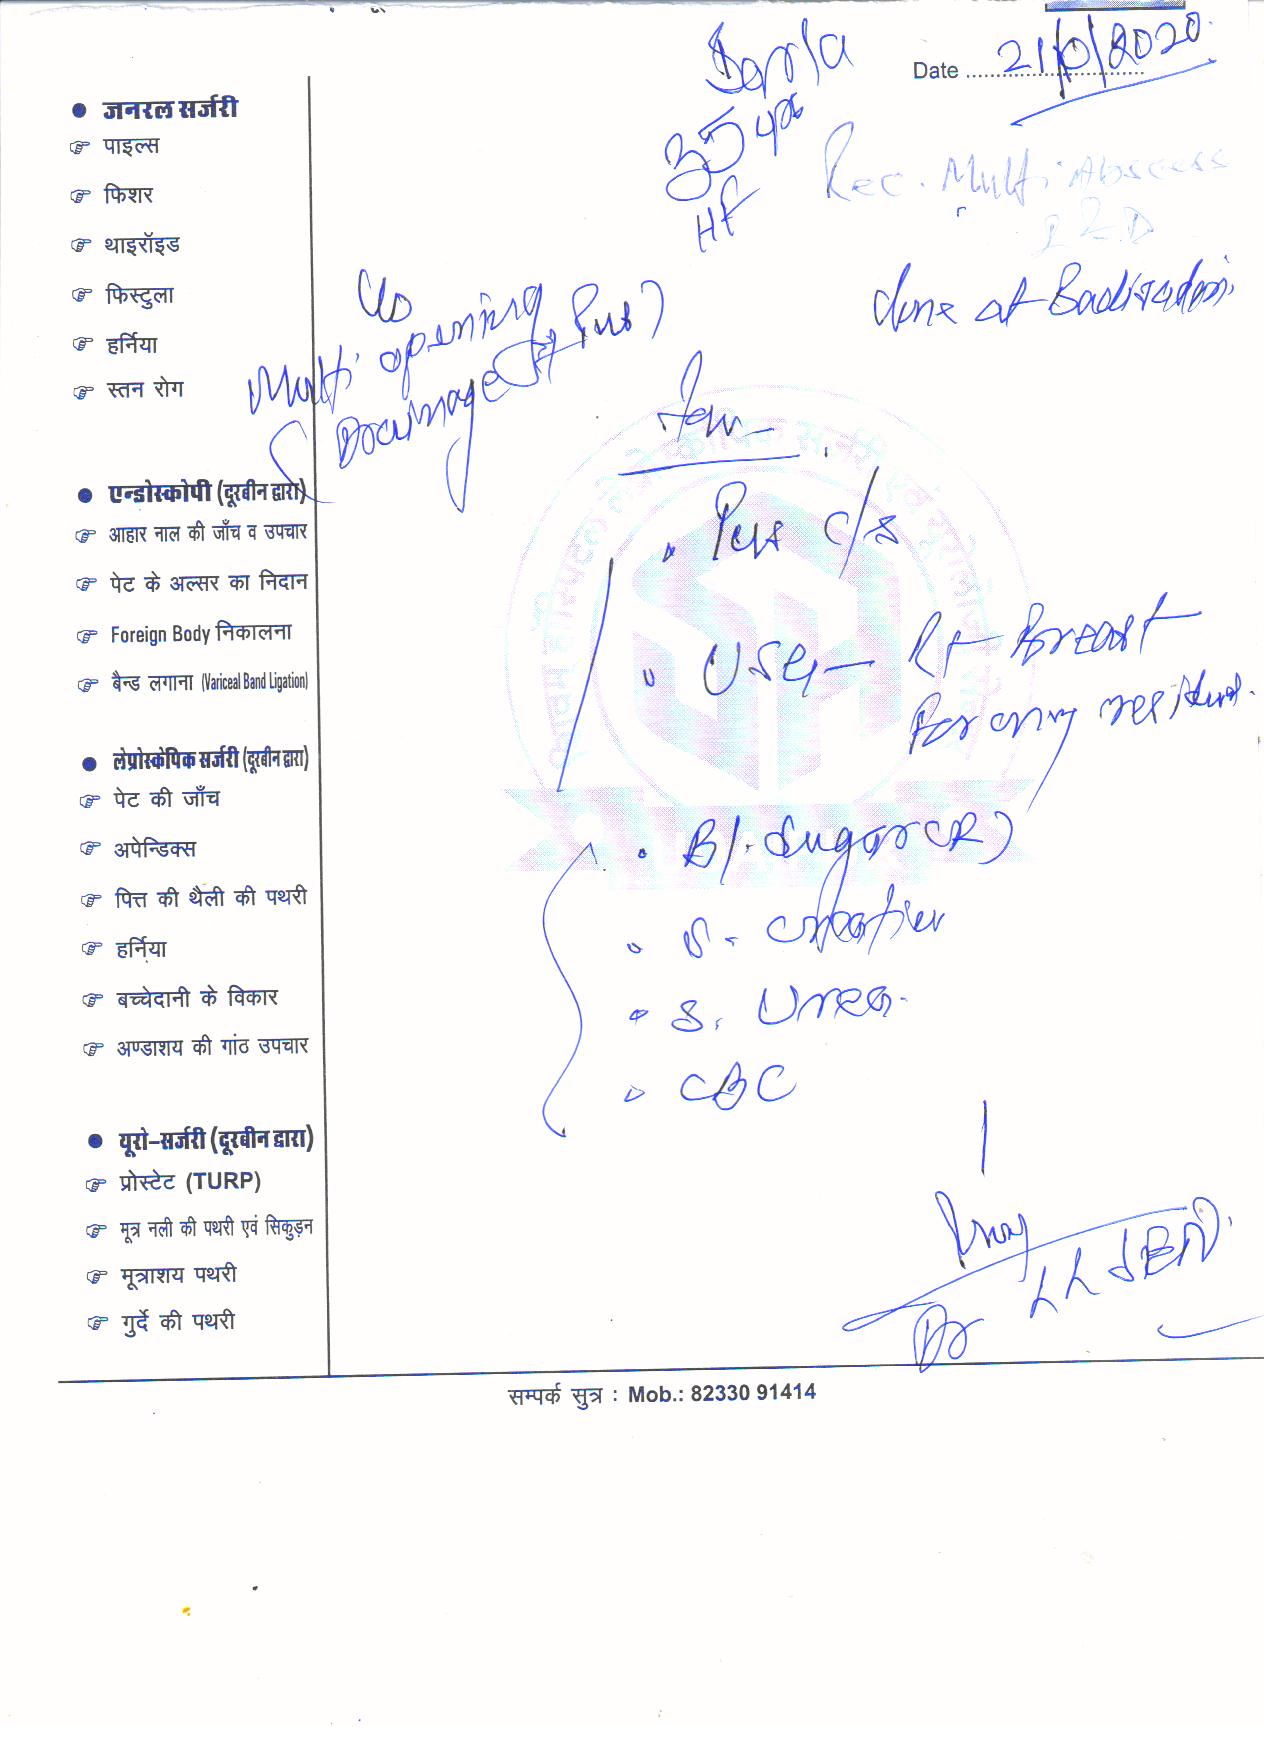 Date
2020
35 yrs
HF
Rec. Multi Abscess
I & D
done at
C/o
Multi opening
Drainage of Pus)
• जनरल सर्जरी
पाइल्स
फिशर
थाइरॉइड
फिस्टुला
हर्निया
स्तन रोग
• एन्डोस्कोपी (दूरबीन द्वारा)
आहार नाल की जाँच व उपचार
पेट के अल्सर का निदान
Foreign Body निकालना
बैन्ड लगाना (Variceal Band Ligation)
• लेप्रोस्कोपिक सर्जरी (दूरबीन द्वारा)
पेट की जाँच
अपेन्डिक्स
पित्त की थैली की पथरी
हर्निया
बच्चेदानी के विकार
अण्डाशय की गांठ उपचार
• यूरो-सर्जरी (दूरबीन द्वारा)
प्रोस्टेट (TURP)
मूत्र नली की पथरी एवं सिकुड़न
मूत्राशय पथरी
गुर्दे की पथरी
Adv-
• Pus c/s
• USG - Rt Breast
For any residual.
• B/. Sugar (R)
• S. creatinine
• S. Urea.
• CBC
Dr L L SEN
सम्पर्क सुत्र : Mob.: 82330 91414